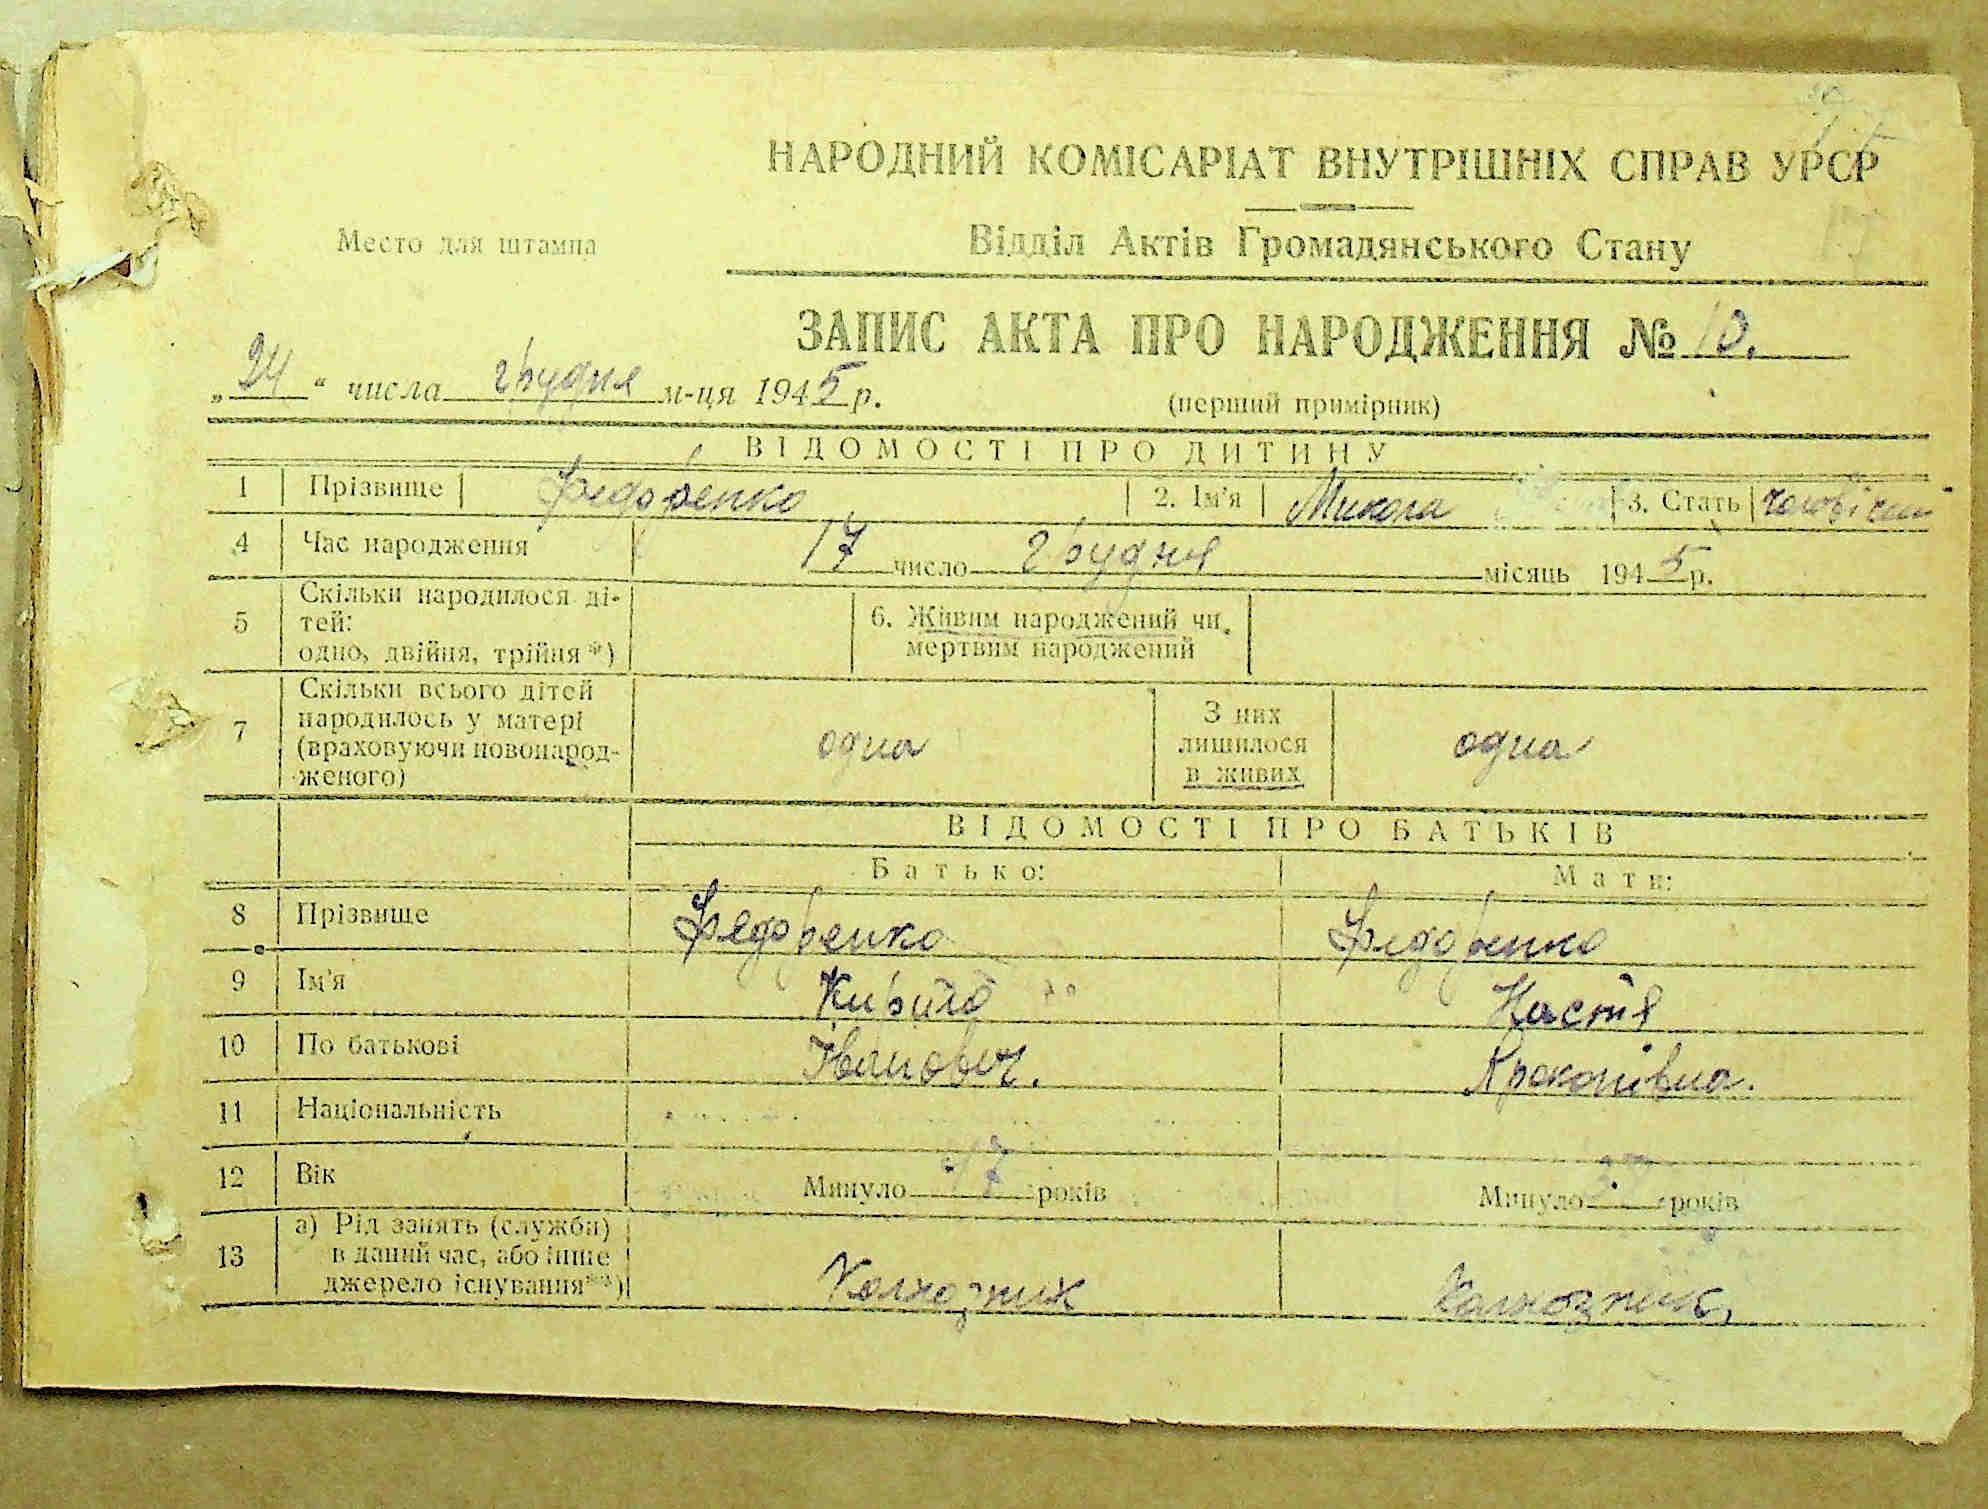 НАРОДНИЙ КОМІСАРІАТ ВНУТРІШНІХ СПРАВ УРСР
Место для штампа
Відділ Актів Громадянського Стану
ЗАПИС АКТА ПРО НАРОДЖЕННЯ № 10.
„24“ числа грудня м-ця 1945 р.
(перший примірник)
ВІДОМОСТІ ПРО ДИТИНУ
1 Прізвище Федоренко 2. Ім'я Микола 3. Стать
4 Час народження 17 число грудня місяць 1945 р.
5 Скільки народилося ді-
тей:
одно, двійня, трійня*)
6. Живим народжений чи
мертвим народжений
7 Скільки всього дітей
народилось у матері
(враховуючи новонарод-
женого)
одна
З них
лишилося
в живих
одна
ВІДОМОСТІ ПРО БАТЬКІВ
Батько: Мати:
8 Прізвище Федоренко Федоренко
9 Ім'я Кирило Настя
10 По батькові Іванович. Прокопівна.
11 Національність
12 Вік Минуло років Минуло років
13 а) Рід занять (служби)
в даний час, або інше
джерело існування**)
Колхозник Колхозник,